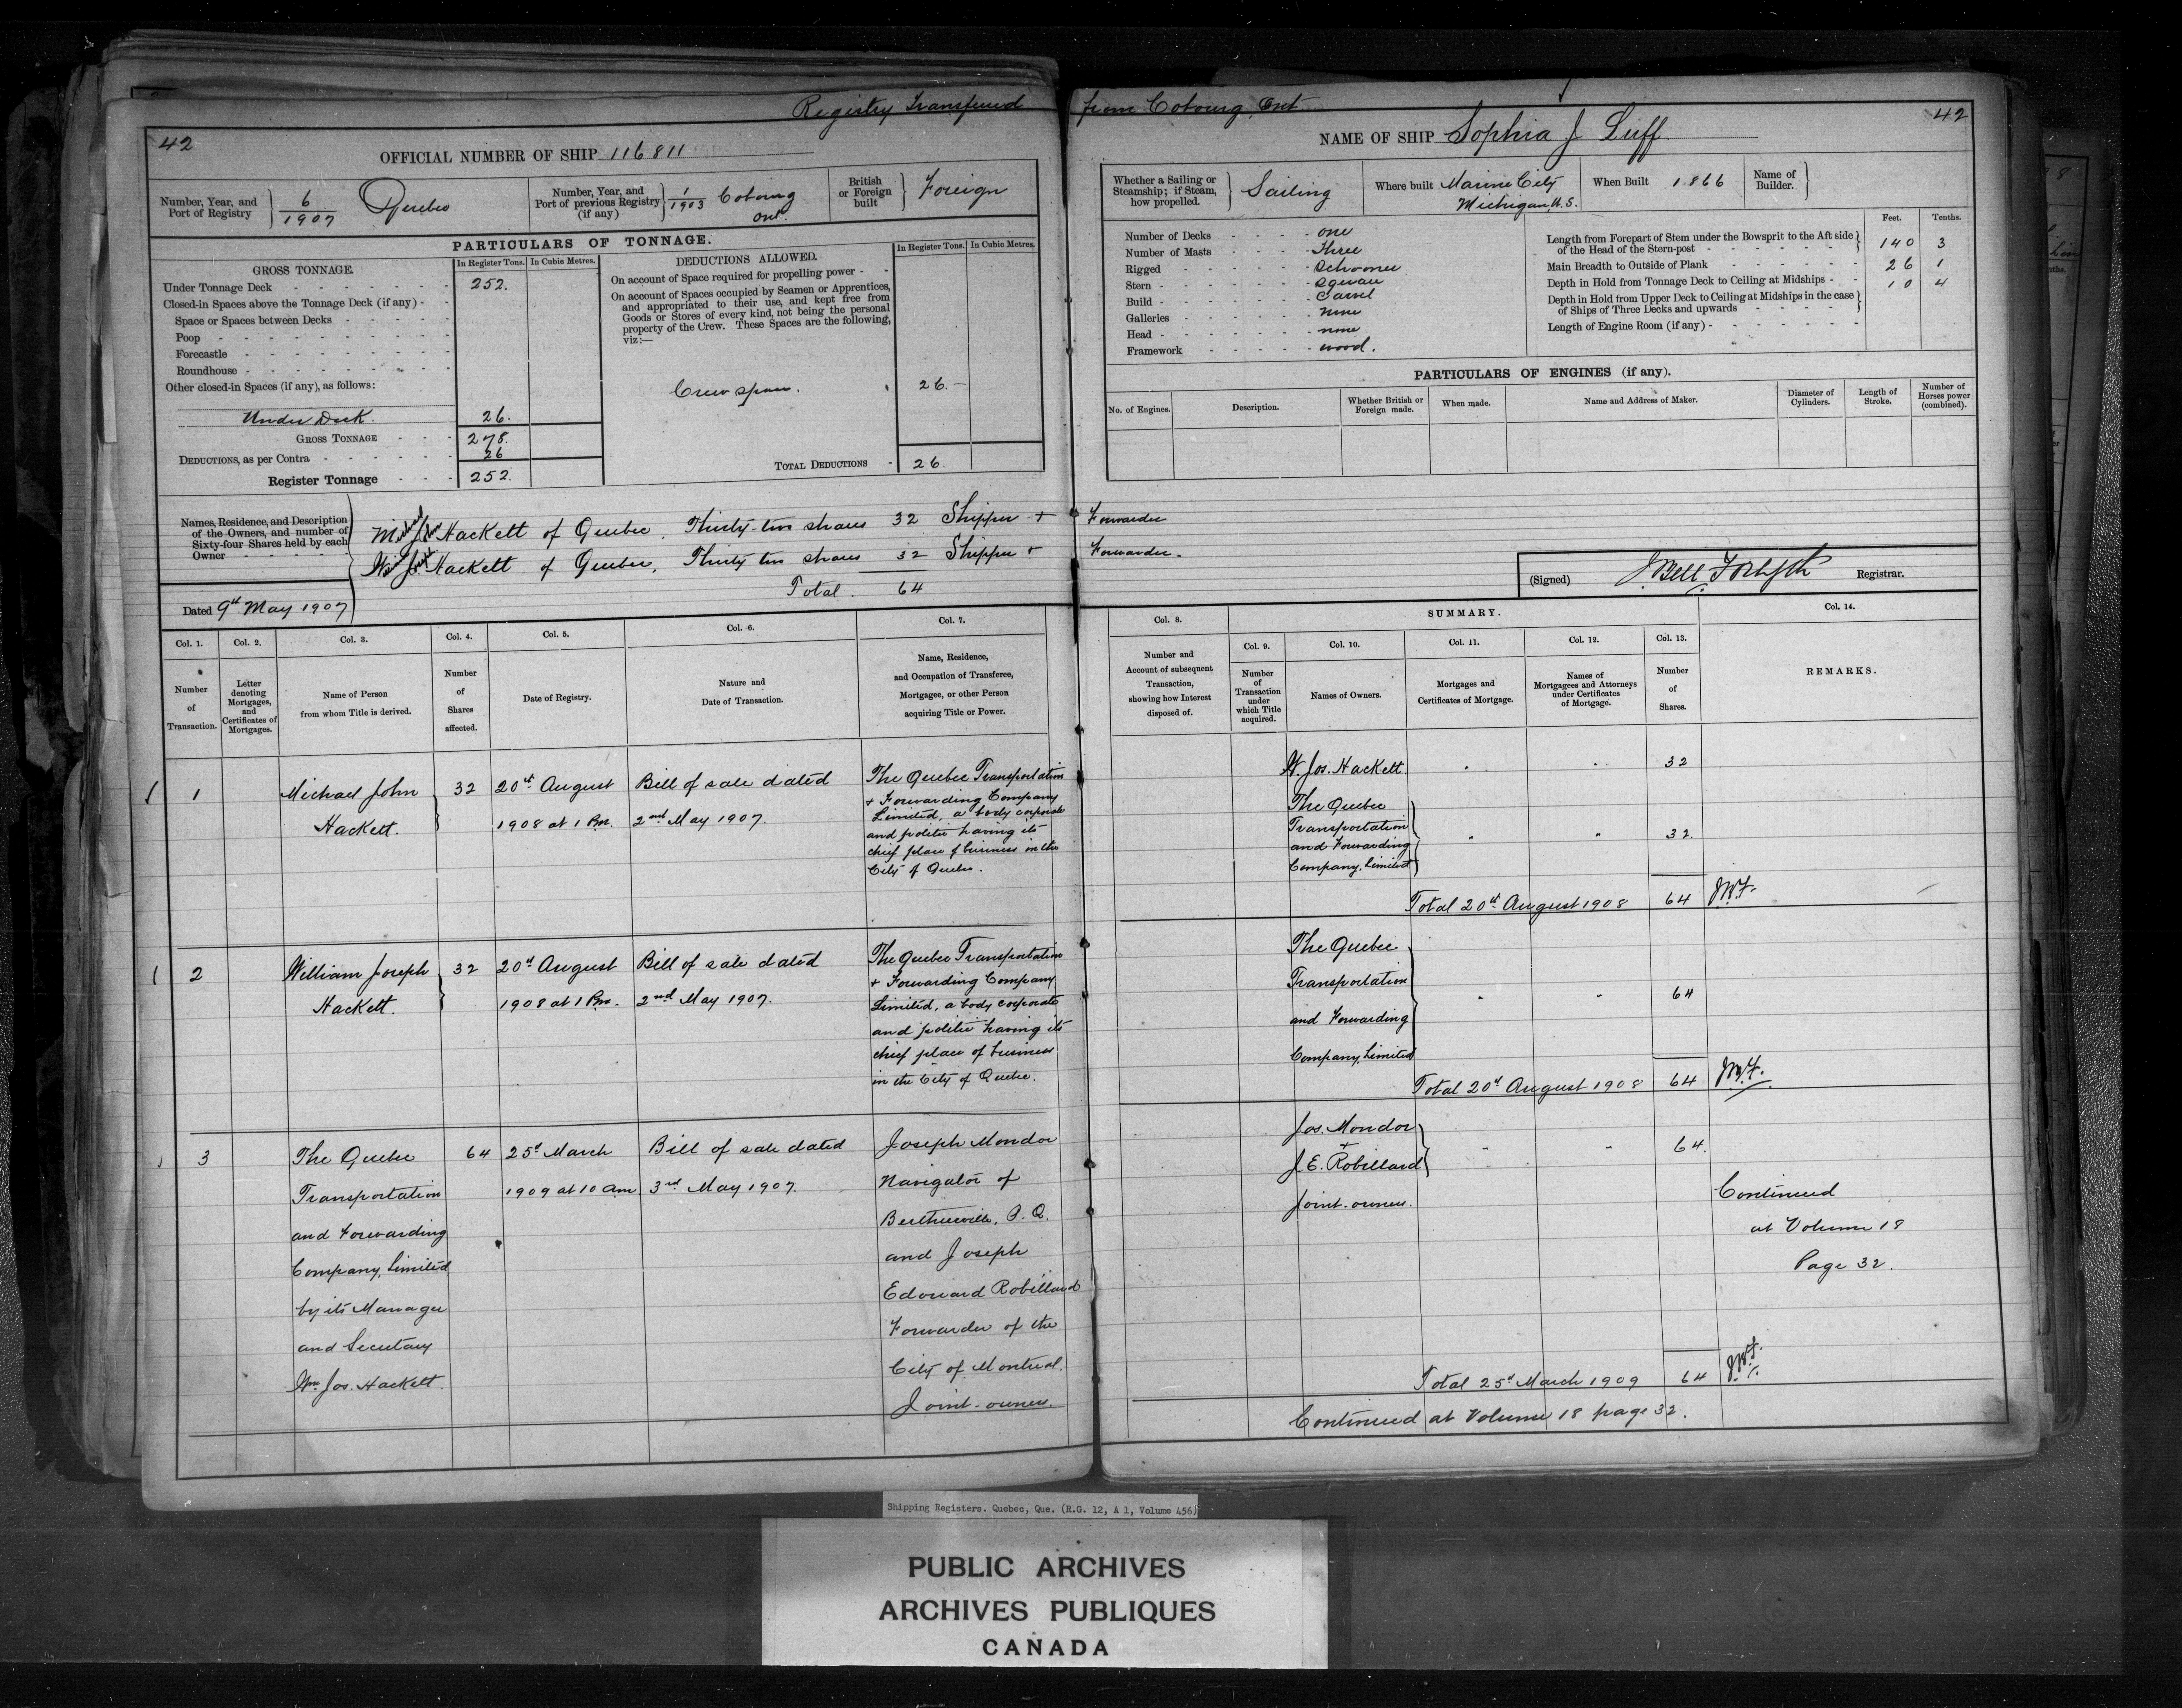 Registry Transferred from Cobourg, Ont.
42
OFFICIAL NUMBER OF SHIP 116811
Number, Year, and Port of Registry 6/1907 Quebec
Number, Year, and Port of previous Registry (if any) 1/1903 Cobourg Ont.
British or Foreign built Foreign
PARTICULARS OF TONNAGE.
GROSS TONNAGE. In Register Tons. In Cubic Metres.
Under Tonnage Deck 252.
Closed-in Spaces above the Tonnage Deck (if any) -
Space or Spaces between Decks
Poop
Forecastle
Roundhouse
Other closed-in Spaces (if any), as follows:
Under Deck. 26.
GROSS TONNAGE 278.
DEDUCTIONS, as per Contra 26
Register Tonnage 252.
DEDUCTIONS ALLOWED. In Register Tons. In Cubic Metres.
On account of Space required for propelling power -
On account of Spaces occupied by Seamen or Apprentices,
and appropriated to their use, and kept free from
Goods or Stores of every kind, not being the personal
property of the Crew. These Spaces are the following,
viz:—
Crew space. 26.—
TOTAL DEDUCTIONS - 26.
Names, Residence, and Description
of the Owners, and number of
Sixty-four Shares held by each
Owner
Michael Jno Hackett of Quebec, Thirty-two shares 32 Shipper + Forwarder
Jos Hackett of Quebec, Thirty two shares 32 Shipper + Forwarder.
Total. 64
Dated 9th May 1907
42
NAME OF SHIP Sophia J Luff
Whether a Sailing or
Steamship; if Steam,
how propelled. Sailing
Where built Marine City Michigan, U.S.
When Built 1866
Name of Builder.
Number of Decks one
Number of Masts Three
Rigged Schooner
Stern Square
Build Carvel
Galleries None
Head none
Framework wood.
Feet. Tenths.
Length from Forepart of Stem under the Bowsprit to the Aft side
of the Head of the Stern-post 140 3
Main Breadth to Outside of Plank 26 1
Depth in Hold from Tonnage Deck to Ceiling at Midships 10 4
Depth in Hold from Upper Deck to Ceiling at Midships in the case
of Ships of Three Decks and upwards
Length of Engine Room (if any)
PARTICULARS OF ENGINES (if any).
No. of Engines. Description. Whether British or Foreign made. When made. Name and Address of Maker. Diameter of Cylinders. Length of Stroke. Number of Horses power (combined).
(Signed) J Bell Forsyth Registrar.
Col. 1. Col. 2. Col. 3. Col. 4. Col. 5. Col. 6. Col. 7.
Number of Transaction.
Letter denoting Mortgages, and Certificates of Mortgages.
Name of Person from whom Title is derived.
Number of Shares affected.
Date of Registry.
Nature and Date of Transaction.
Name, Residence, and Occupation of Transferee, Mortgagee, or other Person acquiring Title or Power.
Col. 8. SUMMARY. Col. 14.
Col. 9. Col. 10. Col. 11. Col. 12. Col. 13.
Number and Account of subsequent Transaction, showing how Interest disposed of.
Number of Transaction under which Title acquired.
Names of Owners.
Mortgages and Certificates of Mortgage.
Names of Mortgagees and Attorneys under Certificates of Mortgage.
Number of Shares.
REMARKS.
1
Michael John
Hackett.
32
20th August
1908 at 1 Pm.
Bill of sale dated
2nd May 1907.
The Quebec Transportation
+ Forwarding Company
Limited, a body corporate
and politic having its
chief place of business in the
City of Quebec.
W. Jos. Hackett. 32
The Quebec
Transportation
and Forwarding
Company, Limited
32.
Total 20th August 1908 64 JBF.
2
William Joseph
Hackett.
32
20th August
1908 at 1 Pm.
Bill of sale dated
2nd May 1907.
The Quebec Transportation
+ Forwarding Company
Limited, a body corporate
and politic having its
chief place of business
in the City of Quebec.
The Quebec
Transportation
and Forwarding
Company, Limited
64
Total 20th August 1908 64 JBF.
3
The Quebec
Transportation
and Forwarding
Company, Limited
by its Manager
and Secretary
Wm Jos. Hackett.
64
25th March
1909 at 10 am
Bill of sale dated
3rd May 1907.
Joseph Mondor
Navigator of
Berthierville, P.Q.
and Joseph
Edouard Robillard
Forwarder of the
City of Montreal.
Joint-owners.
Jos. Mondor
+
J. E. Robillard
Joint-owners.
64.
Continued
at Volume 18
Page 32.
Total 25th March 1909 64 JBF.
Continued at Volume 18 page 32.
Shipping Registers. Quebec, Que. (R.G. 12, A 1, Volume 456)
PUBLIC ARCHIVES
ARCHIVES PUBLIQUES
CANADA